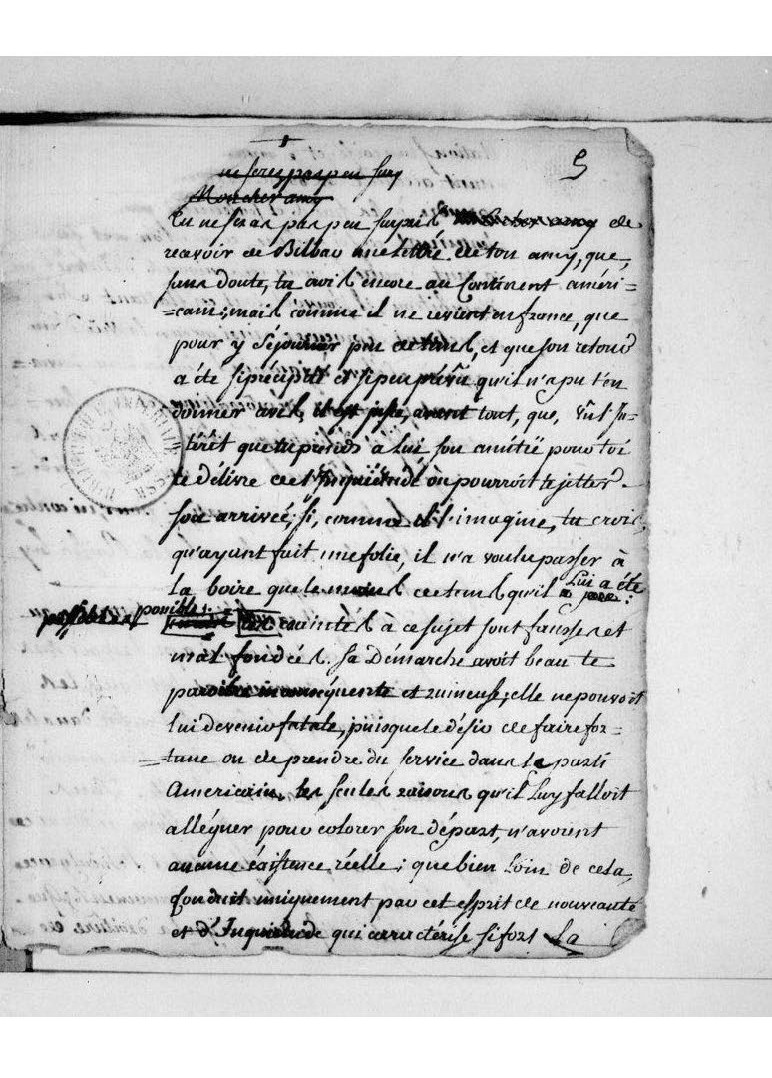 5
ne serez pas peu sur
Mon cher amy
Tu ne seras pas peu surpris de
recevoir de Bilbao une lettre de ton amy, que,
sans doute, tu avis encore au Continent améri=
=cain; mais comme il ne revient en france, que
pour y séjourner peu de tems, et que son retour
a été si précipité et si peu prévu qu'il n'a pu t'en
donner avis, il est juste, avant tout, que, vû l'In=
=térêt que tu prends à Lui son amitié pour toi
te délivre de l'Inquiétude où pourroit te jetter
son arrivée; si, comme il l'imagine, tu crois,
qu'ayant fait une folie, il n'a voulu passer à
la boire que le moins de tems qu'il Lui a été
possible: craintes à ce sujet sont fausses et
mal fondées. Sa Démarche avoit beau te
paroitre inconséquente et ruineuse; elle ne pouvoit
lui devenir fatale, puisque le désir de faire for=
=tune ou de prendre du service dans le parti
Americain, les seules raisons qu'il Luy falloit
alléguer pour colorer son départ, n'avoient
aucune éxistence réelle; que bien loin de cela,
conduit uniquement par cet esprit de nouveauté
et d'Inquiétude qui caractérise si fort La